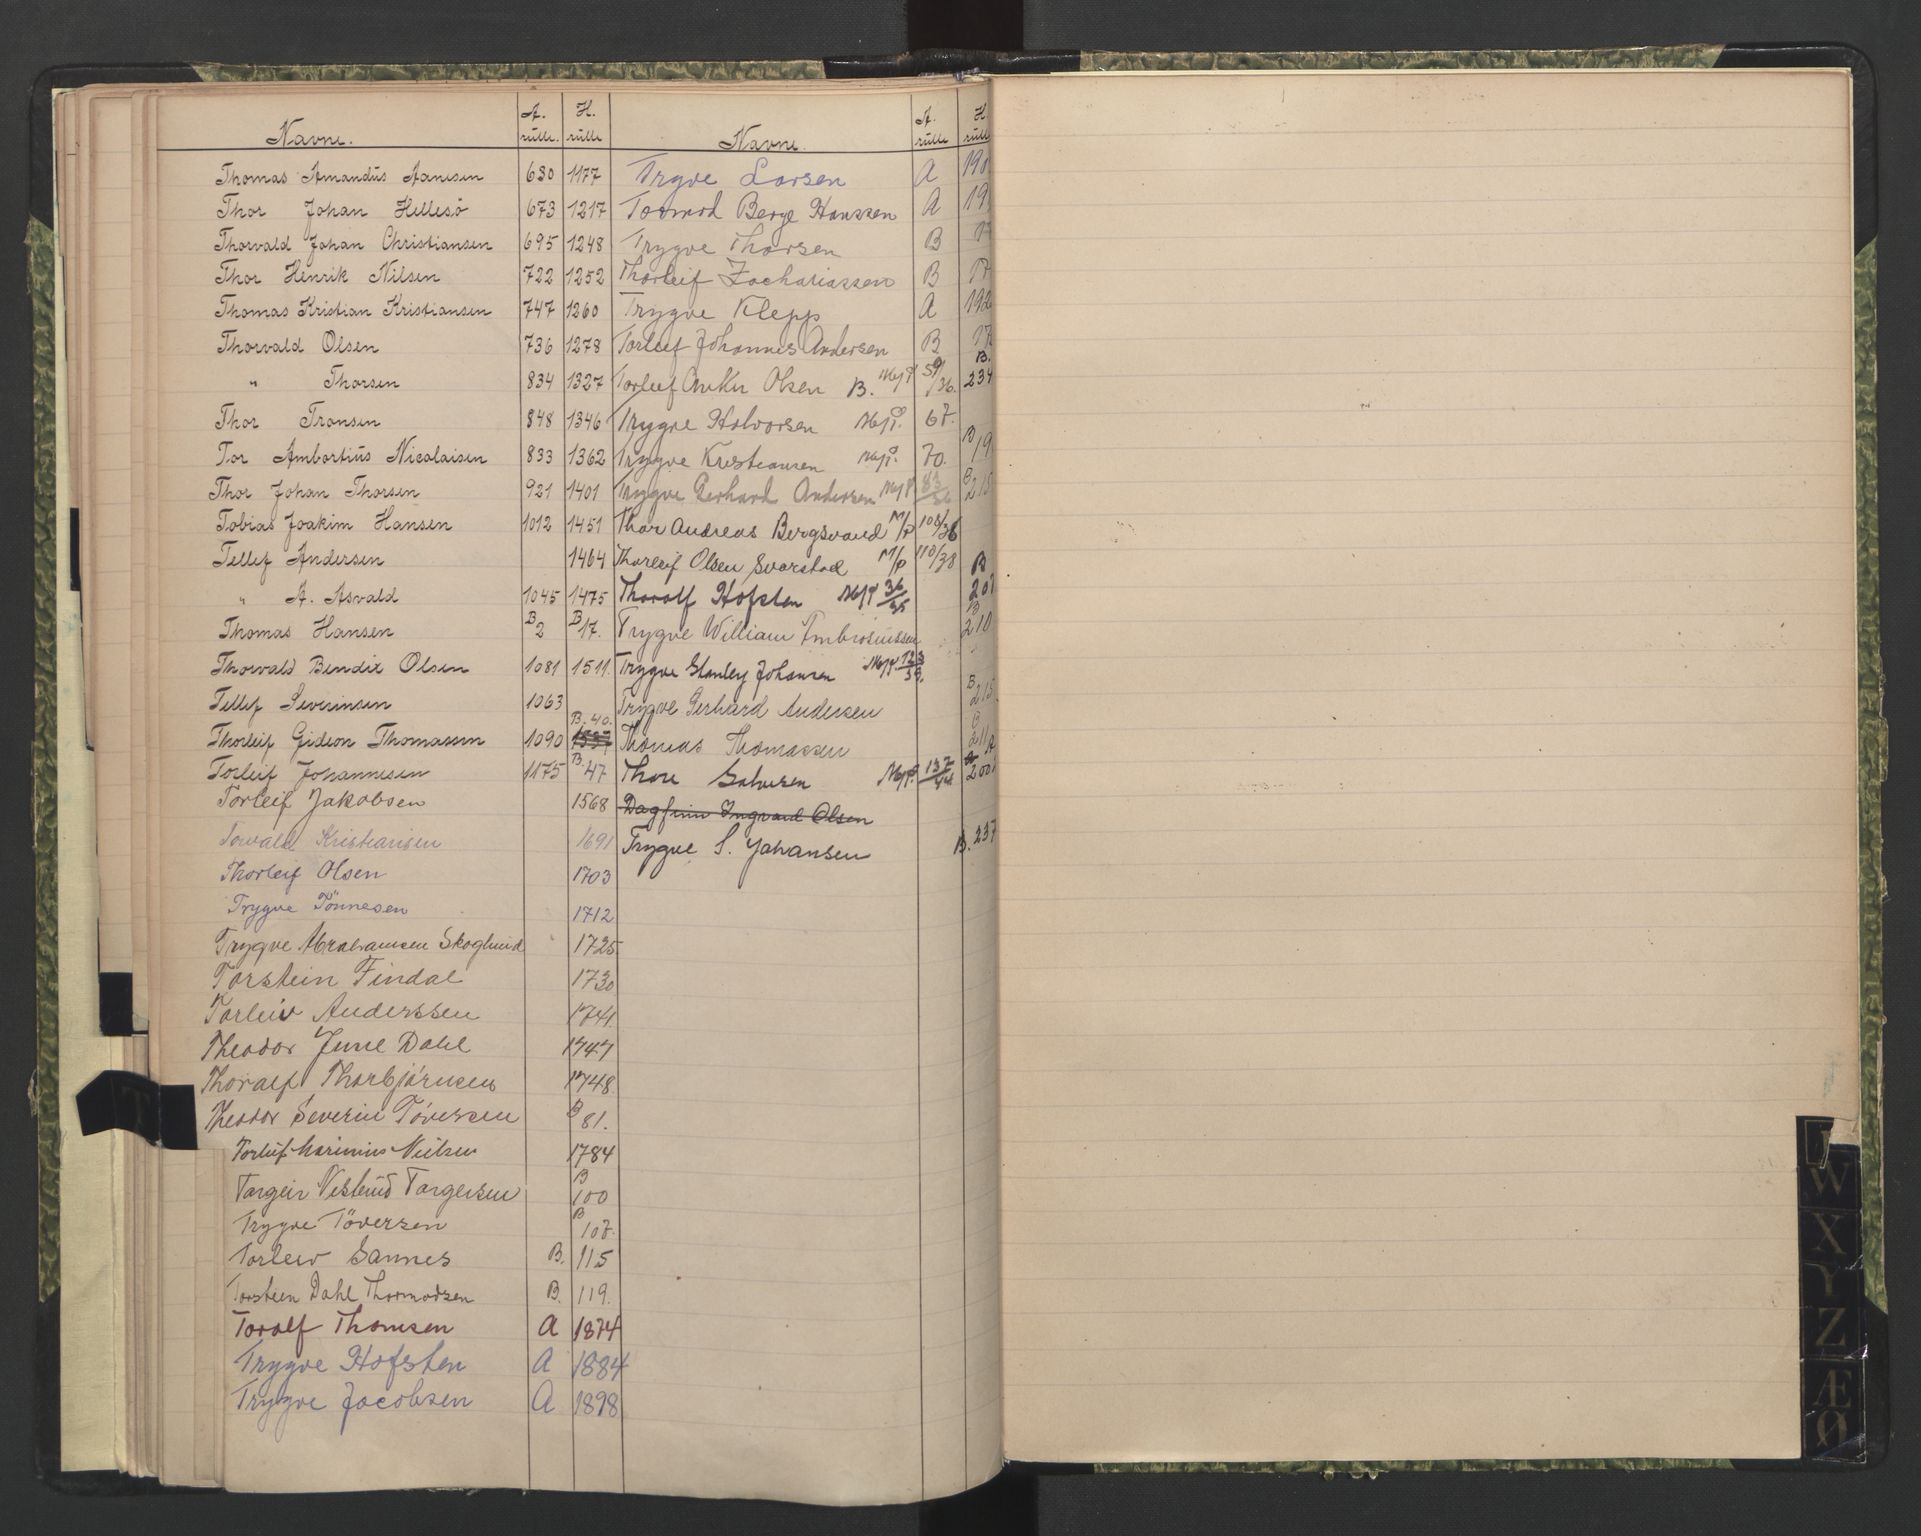 Navne. A. rulle. H. rulle
Thomas Amandus Aanesen 630 1177
Thor Johan Hillesö 673 1217
Thorvald Johan Christiansen 695 1248
Thor Henrik Nilsen 722 1252
Thomas Kristian Kristiansen 747 1260
Thorvald Olsen 736 1278
" Thorsen 834 1327
Thor Tronsen 848 1346
Tor Ambortius Nicolaisen 833 1362
Thor Johan Thorsen 921 1401
Tobias Joakim Hansen 1012 1451
Tellef Andersen 1464
" A. Asvald 1045 1475
Thomas Hansen B 2 B 17.
Thorvald Bendix Olsen 1081 1511.
Tellef Severinsen 1063
Thorleif Gideon Thomassen 1090 B. 40.
Torleif Johannesen 1175 B. 47
Torleif Jakobsen 1568
Torvald Kristiansen 1691
Thorleif Olsen 1703
Trygve Tönnesen 1712
Trygve Abrahamsen Skoglund 1725
Torstein Findal 1730
Torleiv Anderssen 1741
Theodor Juul Dahl 1747
Thoralf Thorbjörnsen 1748
Theodor Severin Töversen B 81.
Torleif Marinius Nielsen 1784
Torgeir Vestlund Torgersen B 100
Trygve Töversen B 107.
Torleiv Sannes B. 115
Torsteen Dahl Thormodsen B. 119.
Toralf Thomsen A 1874
Trygve Hofsten A 1884
Trygve Jacobsen A 1898
Navne. A. rulle H. rull
Trygve Larsen A 190
Tormod Berge Hanssen A 19
Trygve Thorsen B 17
Thorleif Zachariassen B 17
Trygve Klepp A 192
Torleif Johannes Andersen B 17
Torleif Anker Olsen B. M/P 59/36. B. 234
Trygve Halvorsen 67.
Trygve Kristiansen 70. B 19
Trygve Gerhard Andersen 83/36 B 215
Thor Andreas Bergsvand M/P 108/38
Thorleif Olsen Svarstad M/P 110/38
Thoralf Hofsten 36/35 B 201
Trygve William Ambrosiussen B 210
Trygve Stanley Johansen 123/39.
Trygve Gerhard Andersen B 215.
Thomas Thomassen B 211
Thore Salvesen 137/44 A 200
Dagfinn Ingvard Olsen
Trygve S. Johansen B. 237
T
U
W
X
Y
Z
Æ
Ø